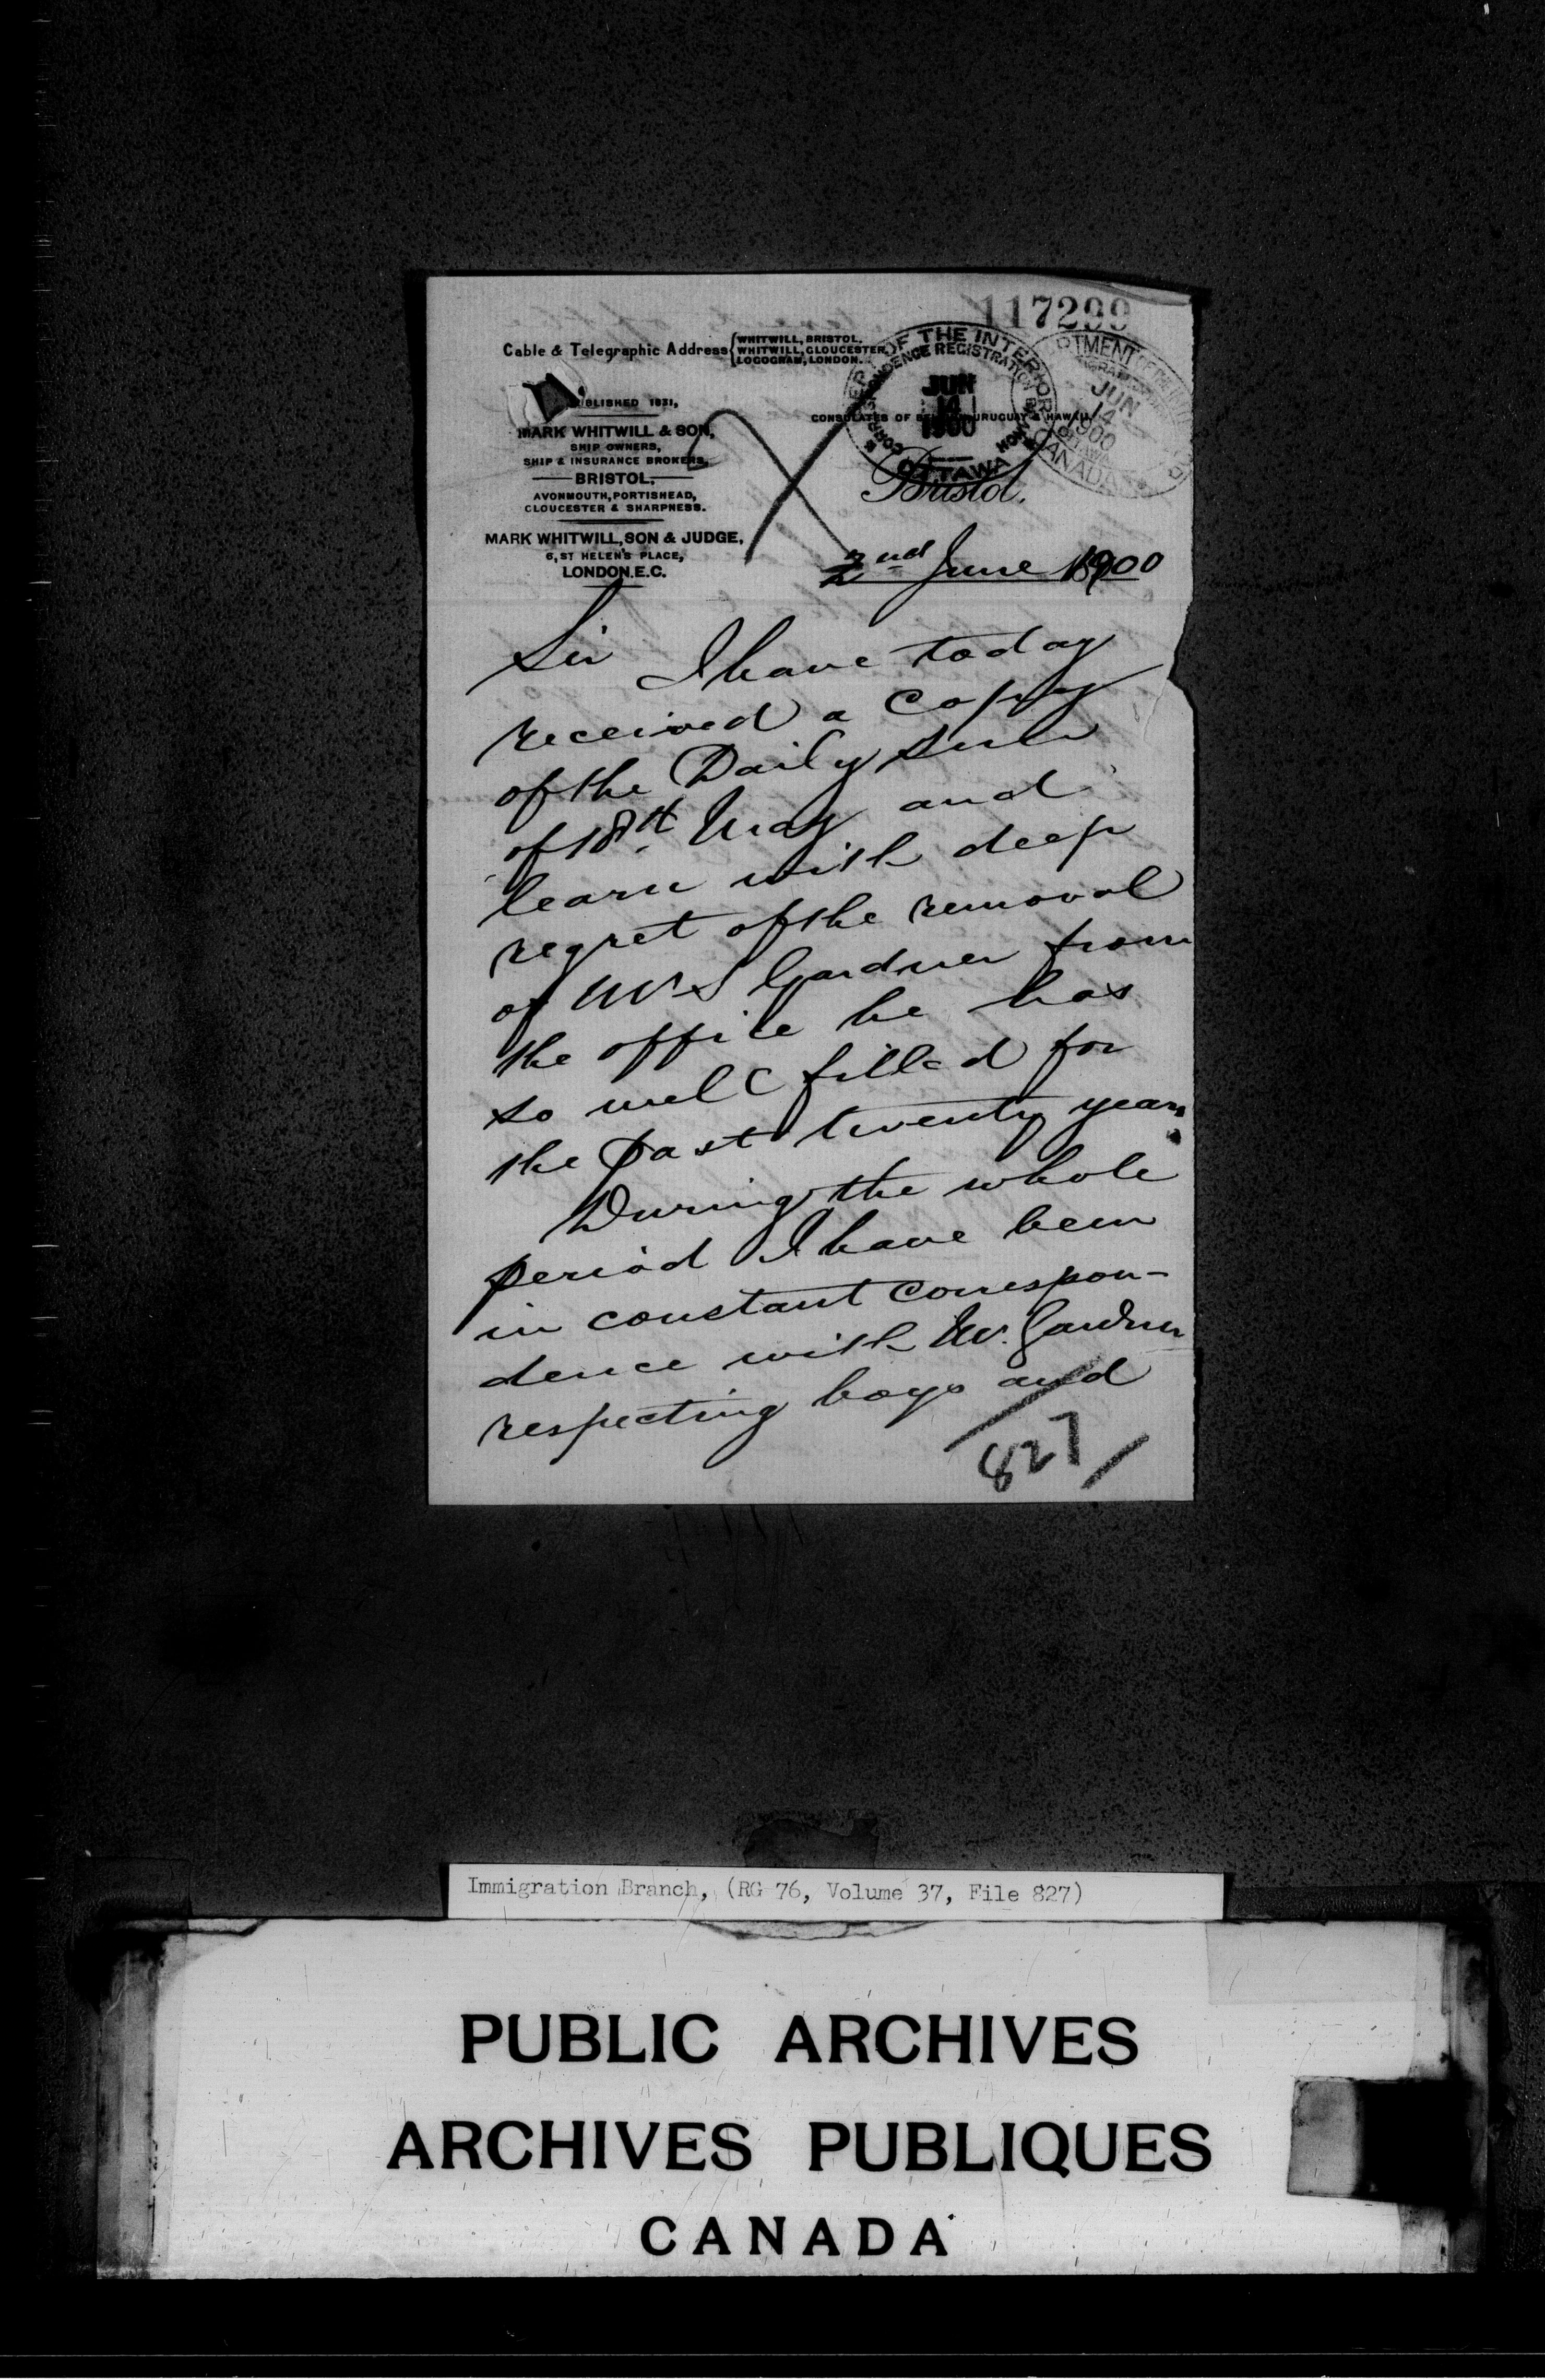 117299
Cable & Telegraphic Address { WHITWILL, BRISTOL.
WHITWILL, GLOUCESTER.
LOGOGRAM, LONDON.
BLISHED 1831,
MARK WHITWILL & SON,
SHIP OWNERS,
SHIP & INSURANCE BROKERS,
BRISTOL.
AVONMOUTH, PORTISHEAD,
GLOUCESTER & SHARPNESS.
MARK WHITWILL, SON & JUDGE,
6, ST HELEN'S PLACE,
LONDON. E.C.
DEPT OF THE INTERIOR
CORRESPONDENCE REGISTRATION BRANCH
JUN
14
1900
OTTAWA
JUN
14
1900
OTTAWA
CANADA
CONSULATES OF URUGUAY & HAWAII
Bristol.
2nd June 1900
Sir I have today
received a copy
of the Daily Sun
of 18th May and
learn with deep
regret of the removal
of Mr S Gardner from
the office he has
so well filled for
the past twenty years
During the whole
period I have been
in constant correspon-
dence with Mr. Gardner
respecting boys and
827
Immigration Branch, (RG 76, Volume 37, File 827)
PUBLIC ARCHIVES
ARCHIVES PUBLIQUES
CANADA